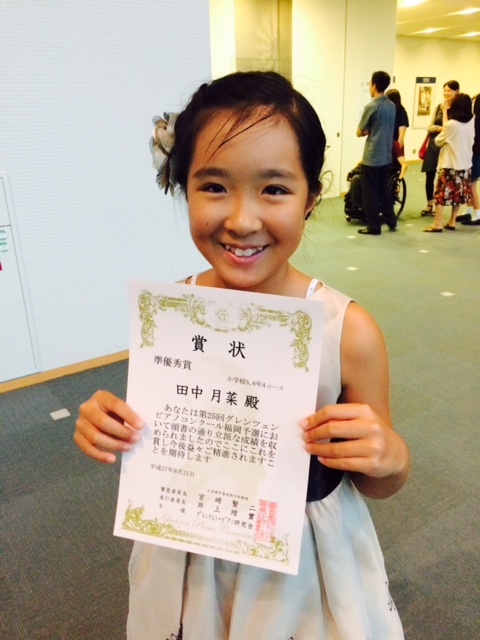 賞状
準優秀賞
小学校5,6年Aコース
田中 月菜 殿
あなたは第25回グレンツェン
ピアノコンクール福岡予選にお
いて頭書の通り立派な成績を収
められましたのでここにこれを
賞し今後益々ご精進されますこ
とを期待します
平成27年8月21日
審査委員長 宮崎賢二
実行委員長 井上増實
主催 グレンツェン・ピアノ研究会